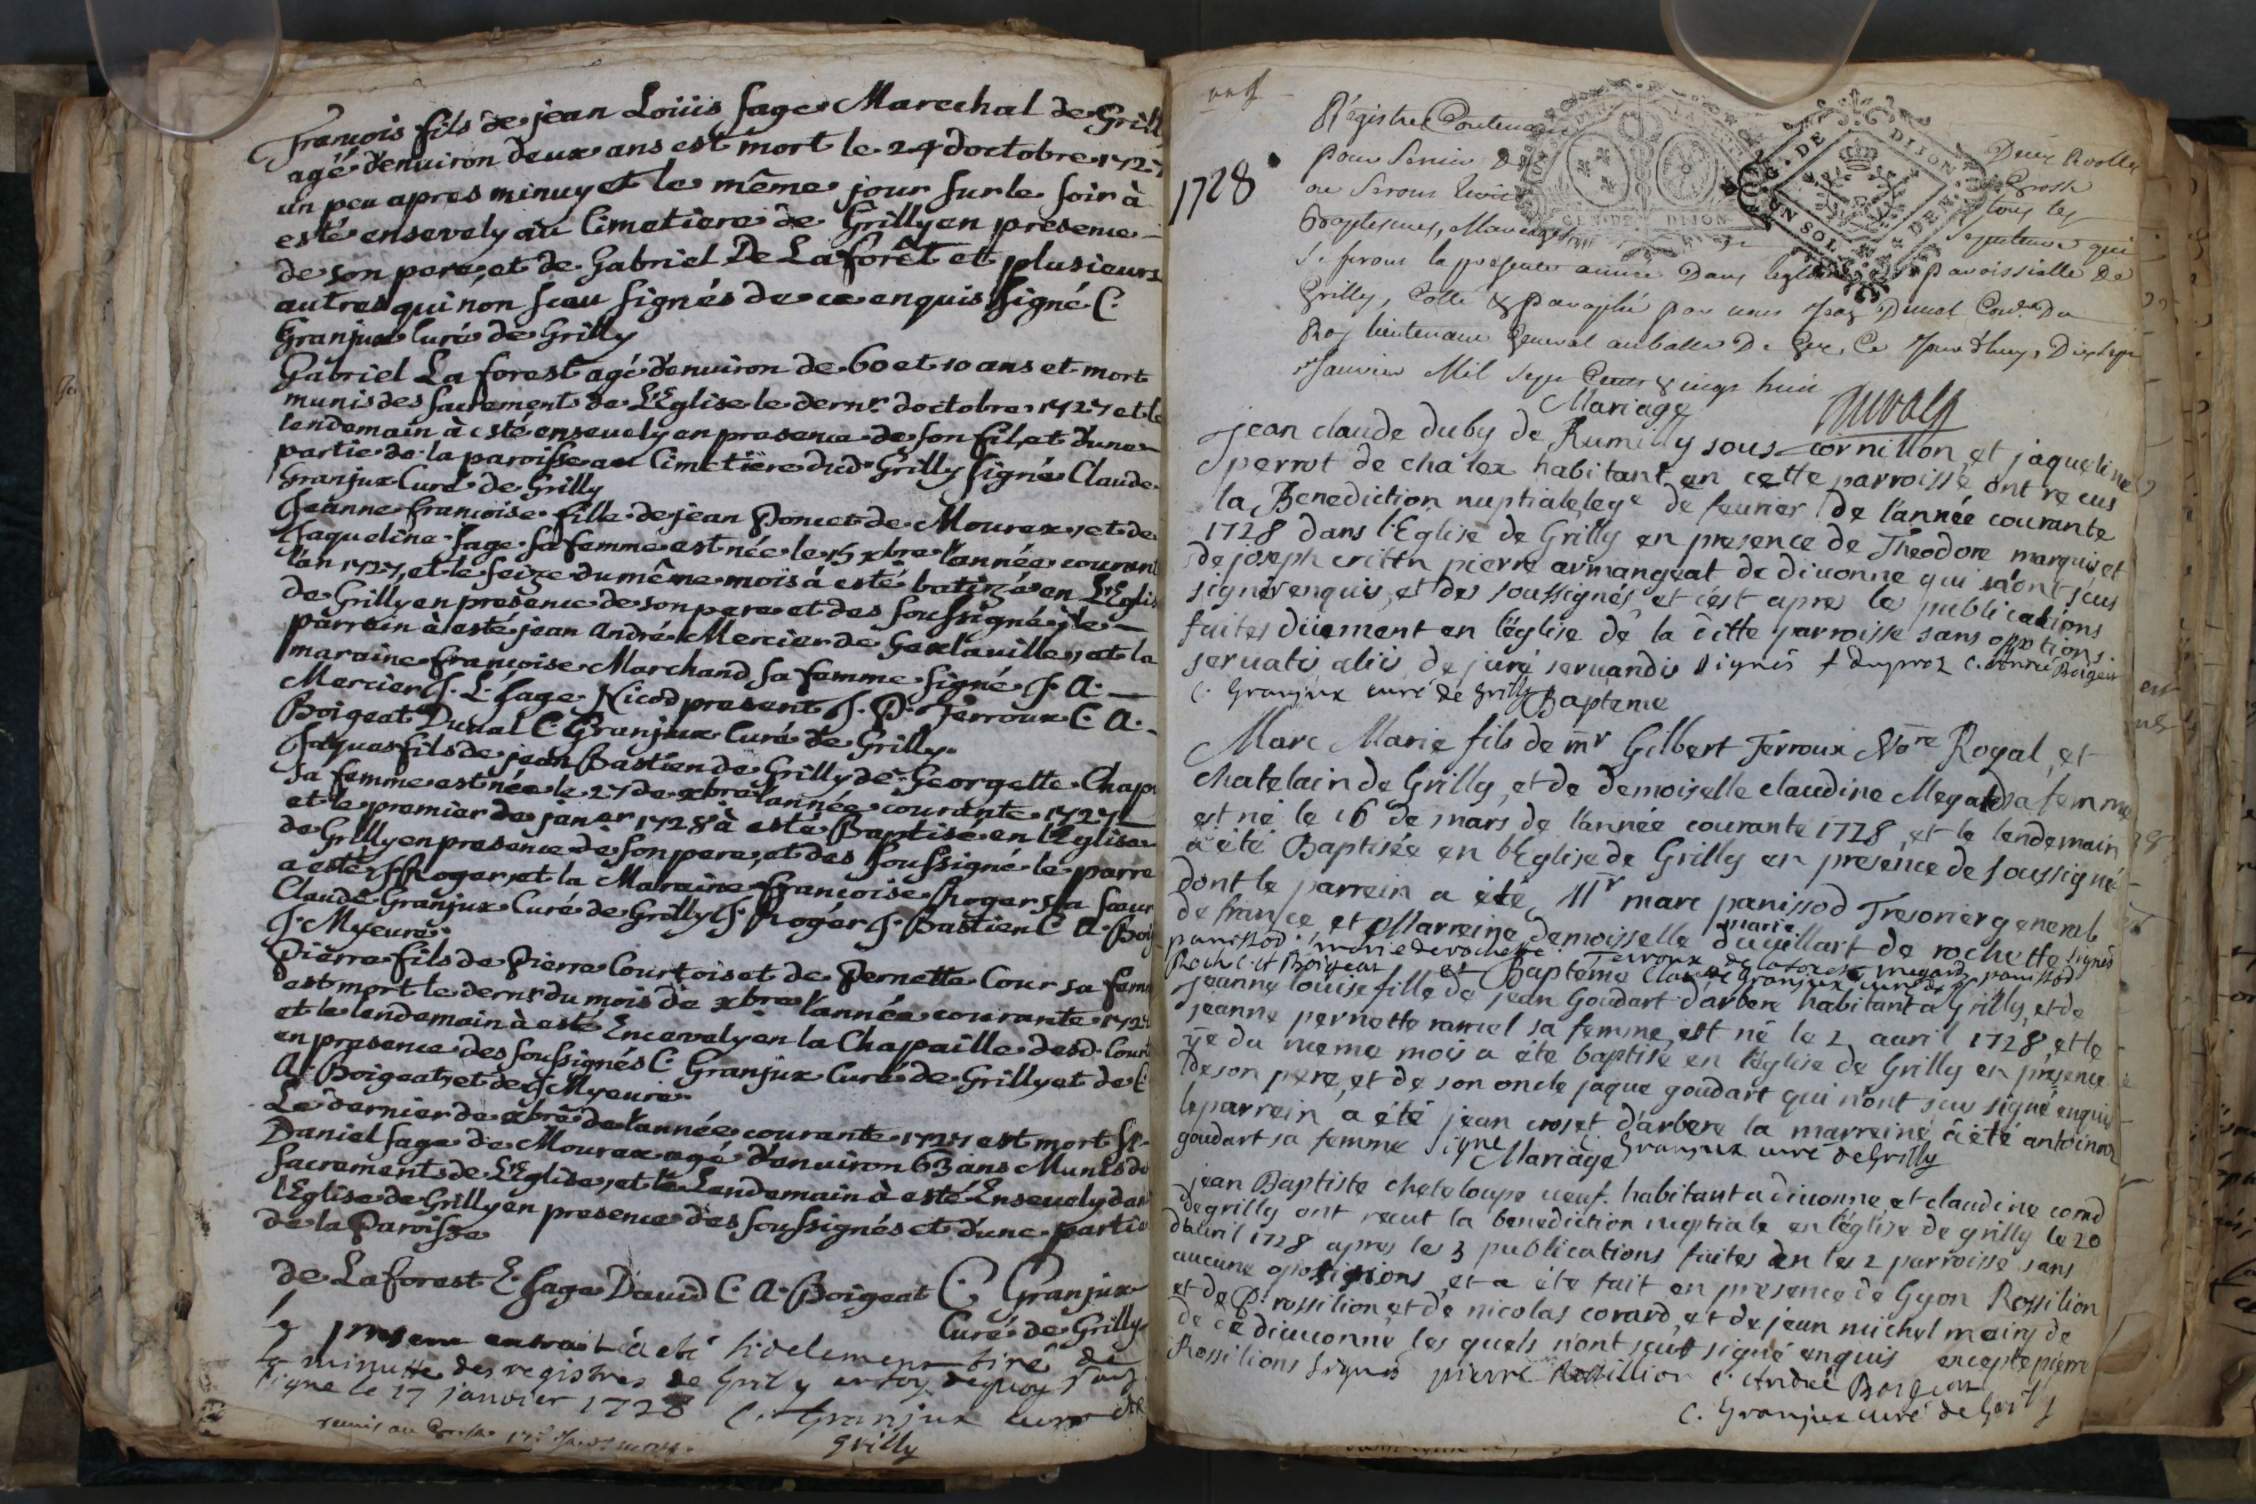 François fils de jean Loüis sage Marechal de Grill
agé d'enuiron deux ans est mort le 24 d'octobre 1727
un peu apres minuy et le même jour sur le soir à
esté ensevely au Cimetiere de Grilly en presence
de son pere, et de Gabriel De Laforêt et plusieurs
autres qui non sceu signés de ce enquis signé C.
Granjux Curé de Grilly
Gabriel Laforest agé denuiron de 60 et 10 ans et mort
munis des sacrements de L'Eglise le dernr. doctobre 1727 et le
lendemain à esté enseuely en presence de son fils, et d'une
partie de la paroisse au Cimetiere dud. Grilly signé Claude
Granjux Curé de Grilly
Jeanne françoise fille de jean Poncet de Mourex, et de
Jaqueline sage sa femme est née le 15 xbre l'année courant
l'an 1727, et le seize du même moïs á esté batizée en L'Eglis
de Grilly en presence de son pere et des soussigné, le
parrein à esté jean André Mercier de Gex la ville, et la
maraine françoise Marchand sa femme signé J. A.
Mercier J. L. sage Nicod present J. P. Ferroux C. A.
Boigeat Duual C. Granjux Curé de Grilly.
Jaques fils de jean Bastien de Grilly de Georgette Chap
sa femme est née le 27 de xbre l'année courante 1727
et le premier de janer 1728 à esté Baptise en l'Eglise
de Grilly en presence de son pere, et des soussigné le parre
a esté J Roger, et la Maraine françoise Roger sa sœur
Claude Granjux Curé de Grilly J. Roger J. Bastien C. A. Boi
J. Myeure.
Pierre fils de Pierre Courtois et de Pernette Cour sa fem
est mort le dernr du mois de xbre l'année courante 172
et le lendemain à esté Encevely en la Chapaille desd. Court
en presence des soussignés C. Granjux Curé de Grilly et de C.
A. Boigeat, et de J Myeure.
Le dernier de xbre de l'année courante 1727 est mort Sr.
Daniel sage de Mourex agé d'enuiron 63 ans Munis de
sacrements de L'Eglise, et le Lendemain à esté Enseuely dan
l'Eglise de Grilly en presence des soussignés et d'une partie
de la Paroisse
de Laforest E. sage Dauid C. A. Boigeat C. Granjux
Curé de Grilly
le present extrait à eté fidelement tiré de
la minutte des registres de Grily en foy dequoy j'ay
signe le 17 janvier 1728 C. Granjux curé de
grilly
1728
Régistre Contenant Deux Roolles
pour Servir de
ou Seront Ecrit tous les
Baptesmes, Mariages qui
Se feront la presente année Dans leglise paroissialle De
Grilly, Cotté & paraphé par nous Duval Du
Roy lieutenant General au balla De Gex, Ce Jourd'huy
Janvier Mil Sept Cent vingt huit
Duval
GEN. DE DIJON
G. DE DIJON
UN SOL
DEN.
Mariage
jean claude duby de Rumilly sous cornillon, et jaqueline
perrot de chalex habitant en cette parroisse ont recus
la Benediction nuptiale, le 9e de feurier de l'année courante
1728 dans l'Eglise de Grilly en presence de Theodore marquis et
de joseph crittn pierre armangeat de diuonne qui n'ont sçus
signér enquis, et des soussignés, et c'est apres les publications
faites düement en l'église de la ditte parroisse sans oppotions.
seruatis aliis de jure seruandis signés f duproz c. andré Boigeat
C. Granjux curé de Grilly
Bapteme
Marc Marie fils de mr Gilbert Ferroux Nore Royal, et
chatelain de Grilly, et de demoiselle claudine Megard sa femme
est né le 16 de mars de l'année courante 1728, et le lendemain
a été Baptisée en l'Eglise de Grilly en presence de soussigné
dont le parrein a été Mr marc panissod Tresorier general
de france, et Marreine demoisselle marie duuillart de rochette signés
panissod marie de rochette Ferroux de laforest megard panissod
Roch C. A Boigeat Claude Granjux curé de
Bapteme
jeanne louise fille de jean Goudart d'arbere habitant a Grilly, et de
jeanne pernette marcel sa femme, est né le 2 auril 1728, et le
du meme mois a été baptisé en l'église de Grilly en présence
de son pere, et de son oncle jaque goudart qui n'ont sçu signé enquis
le parrein a été jean croset d'arbere la marreine à été antoinna
goudart sa femme signé C. Granjux curé de Grilly
Mariage
jean Baptiste cheteloupe ueuf habitant a diuonne, et claudine corad
de grilly ont recut la benediction nuptiale en l'église de grilly le 20
d'auril 1728 apres les 3 publications faites en les 2 parroisse sans
aucune opositions, et a été fait en presence de Gyon Rossilion
et de P. rossilion, et de nicolas corard, et de jean michel mairy de
de diuuonne, les quels n'ont sçut signé enquis excepte pierre
Rossilions signés pierre Rossillion c. André Boigeat
C. Granjux curé de Grilly